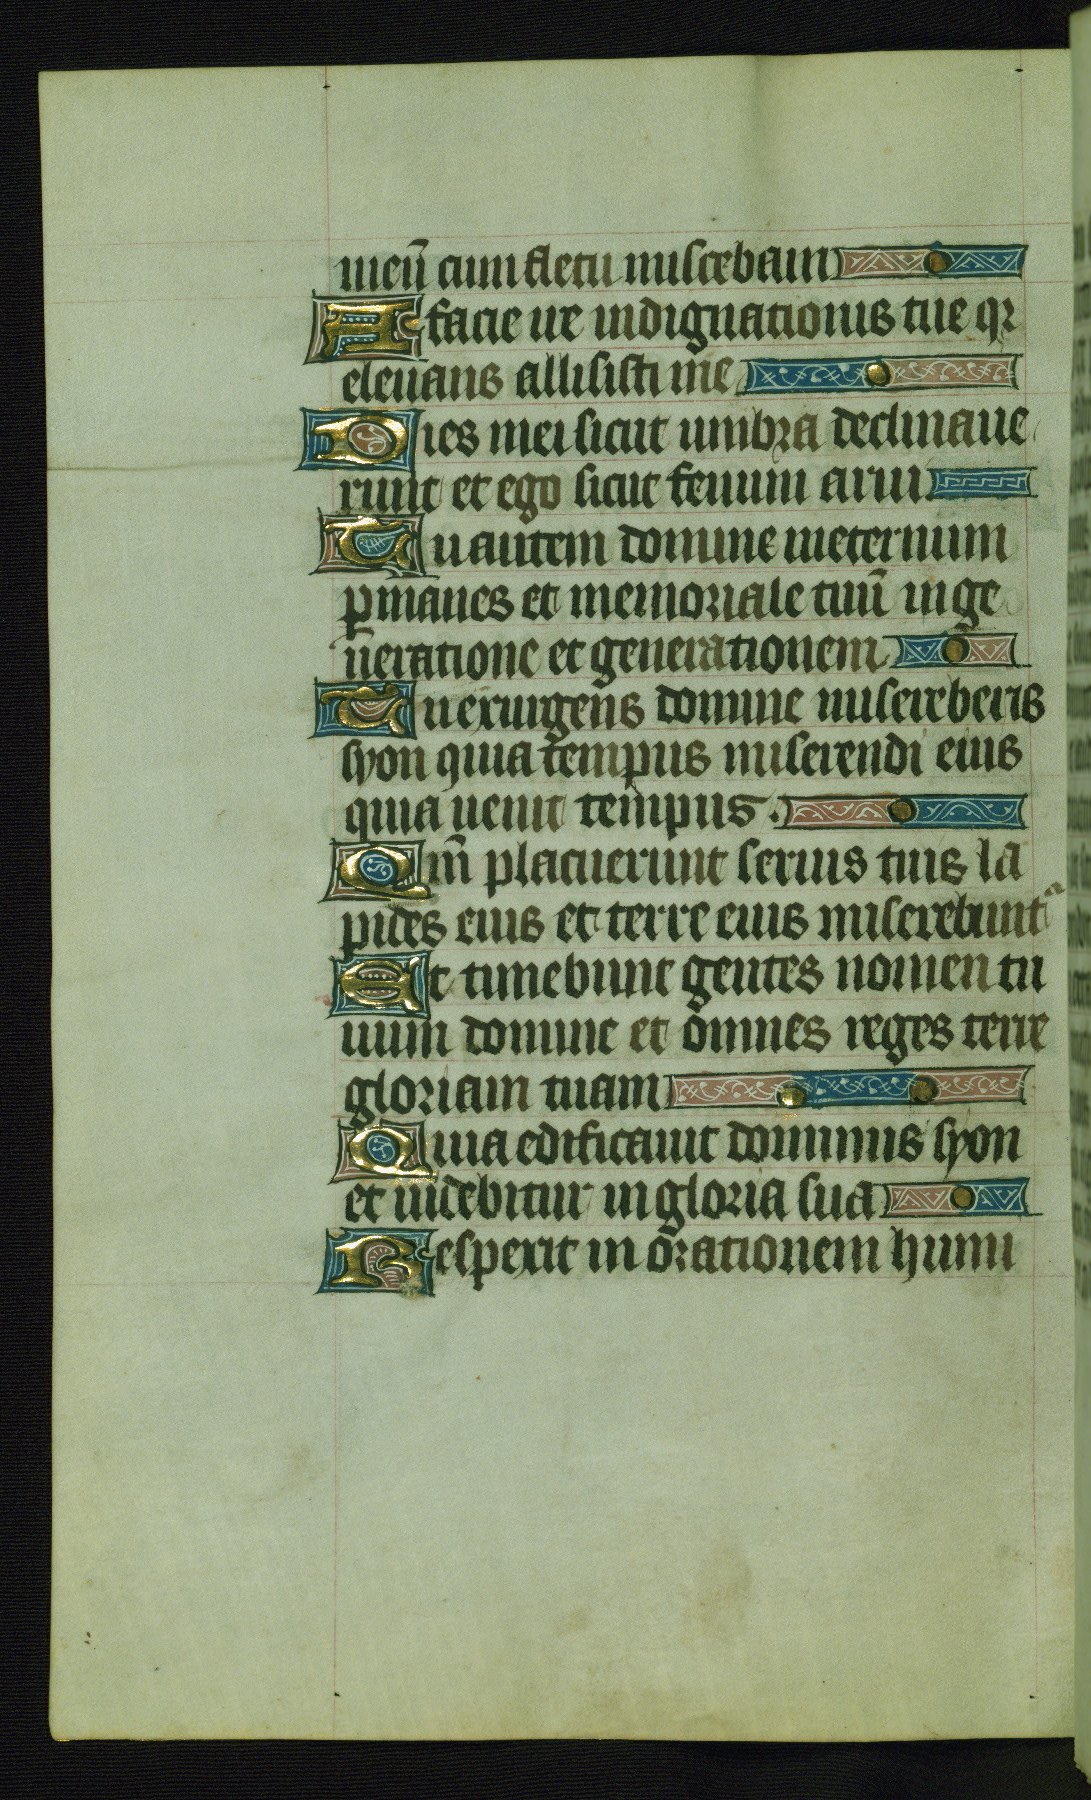 meū cum fletu miscebam
A facie ire indignationis tue qr
elevans allisisti me
Dies mei sicut umbra declinave
runt et ego sicut fenum arui
Tu autem domine ineternum
ꝑmanes et memoriale tuū in ge
neratione et generationem
Tu exurgens domine misereberis
syon quia tempus miserendi eius
quia uenit tempus.
Qm̄ placuerunt servis tuis la
pides eius et terre eius miserebuntᵃ
Et timebunt gentes nomen tu
uum domine et omnes reges terre
gloriam tuam
Quia edificauit dominus syon
et uidebitur in gloria sua
Respexit in orationem humi